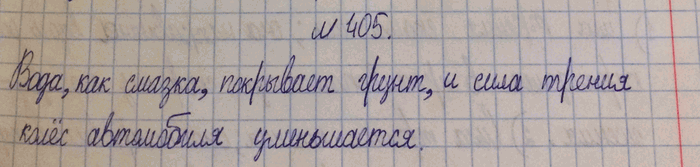 № 405.
Вода, как смазка, покрывает грунт, и сила трения
колёс автомобиля уменьшается.